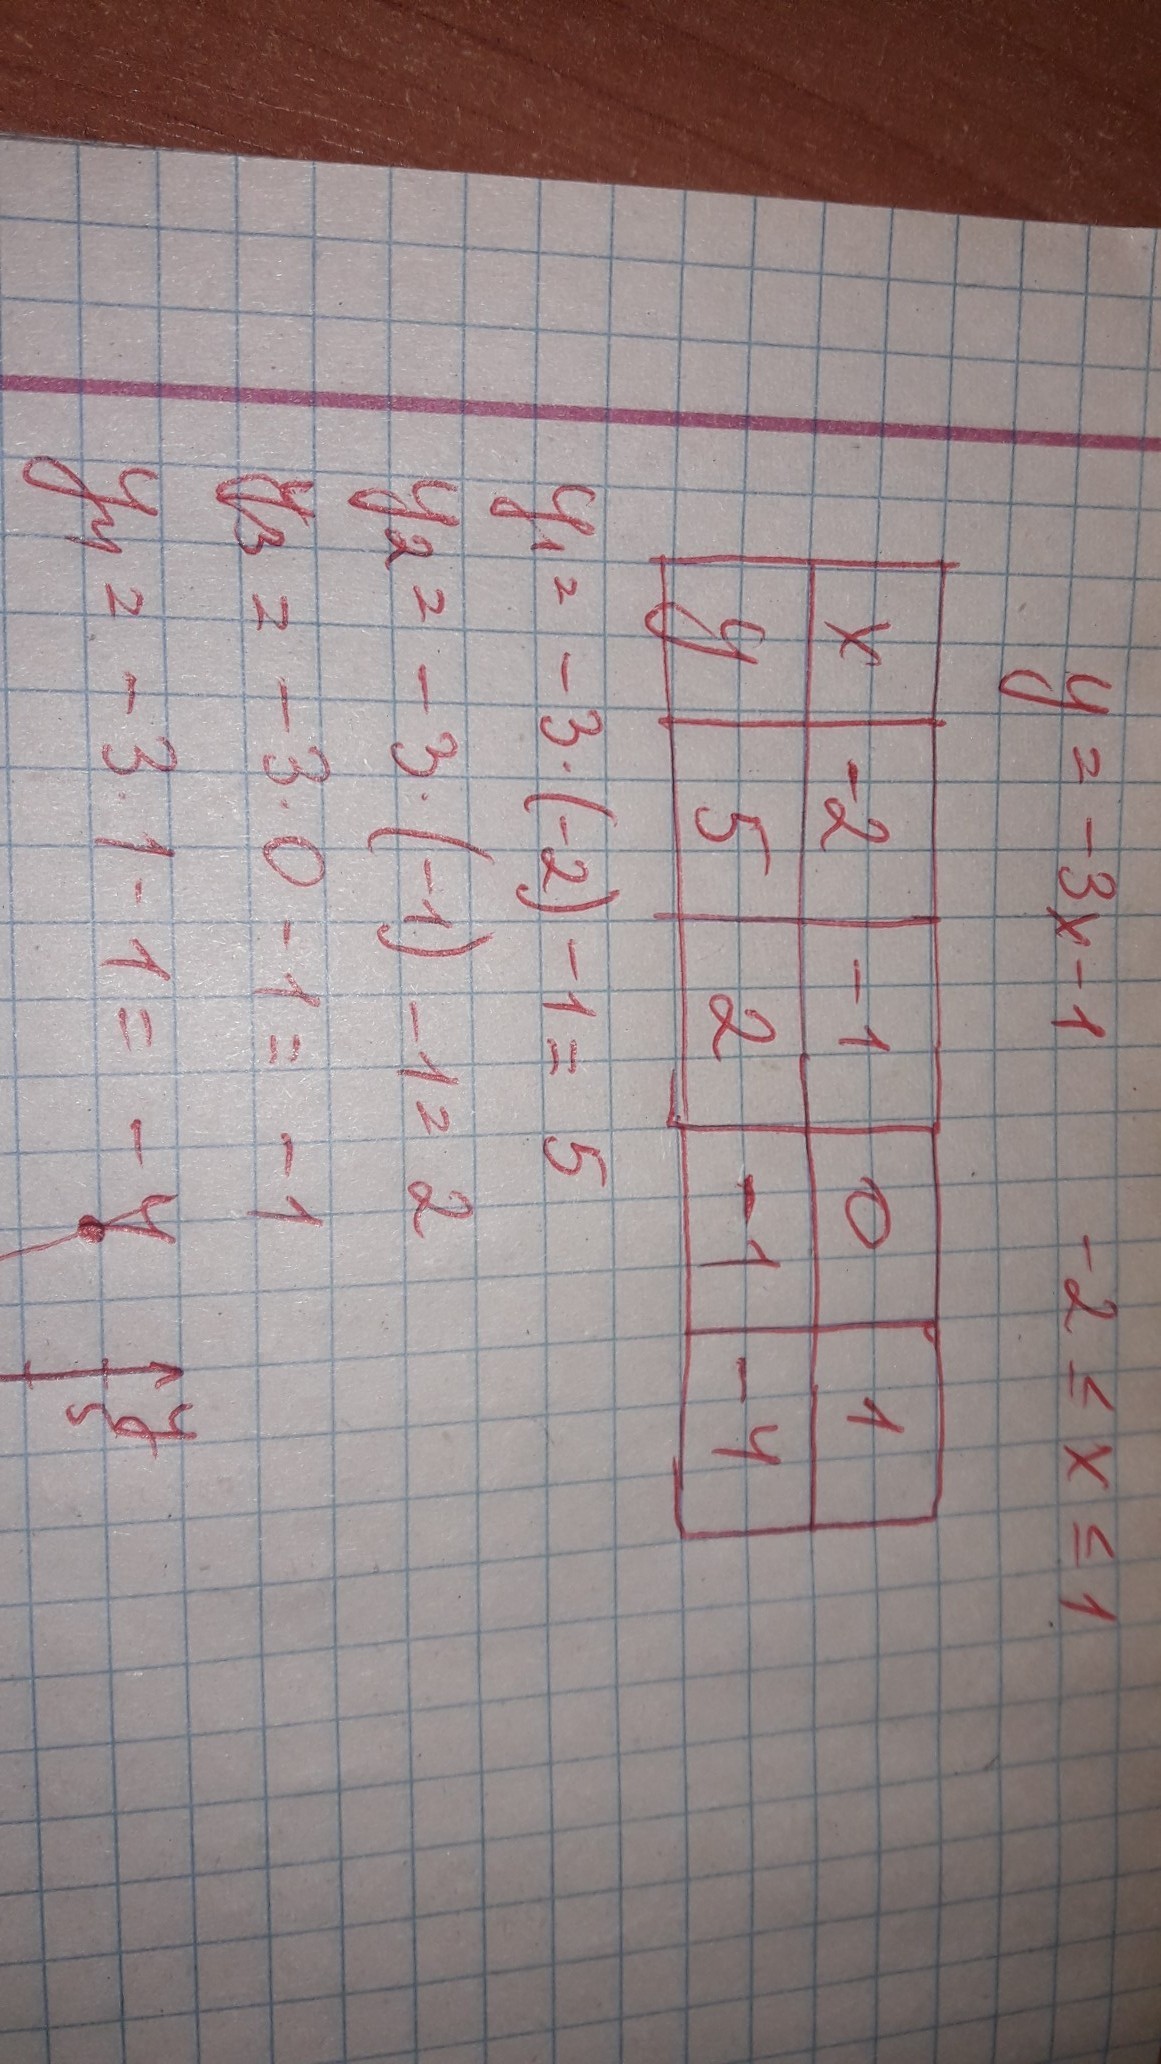 y = -3x - 1 -2 ≤ x ≤ 1
x -2 -1 0 1
y 5 2 -1 -4
y1 = -3·(-2) -1 = 5
y2 = -3·(-1) -1 = 2
y3 = -3·0 -1 = -1
y4 = -3·1 - 1 = -4
y
5